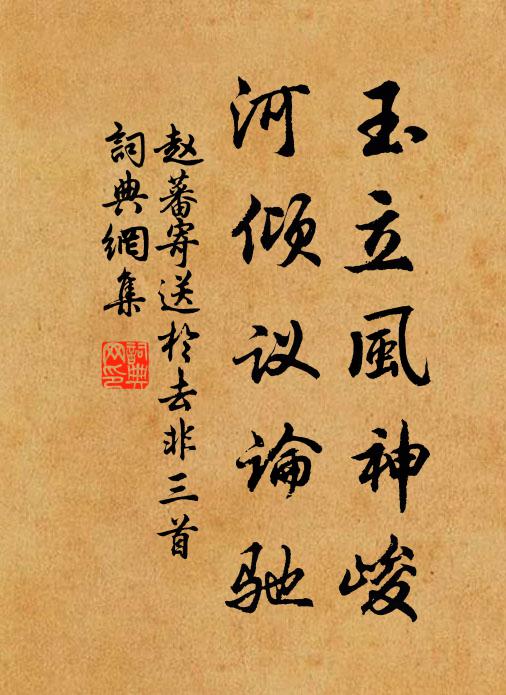 玉立風神峻
河倾议論驰
赵蕃寄送於去非三首
詞典網集
詞典網印